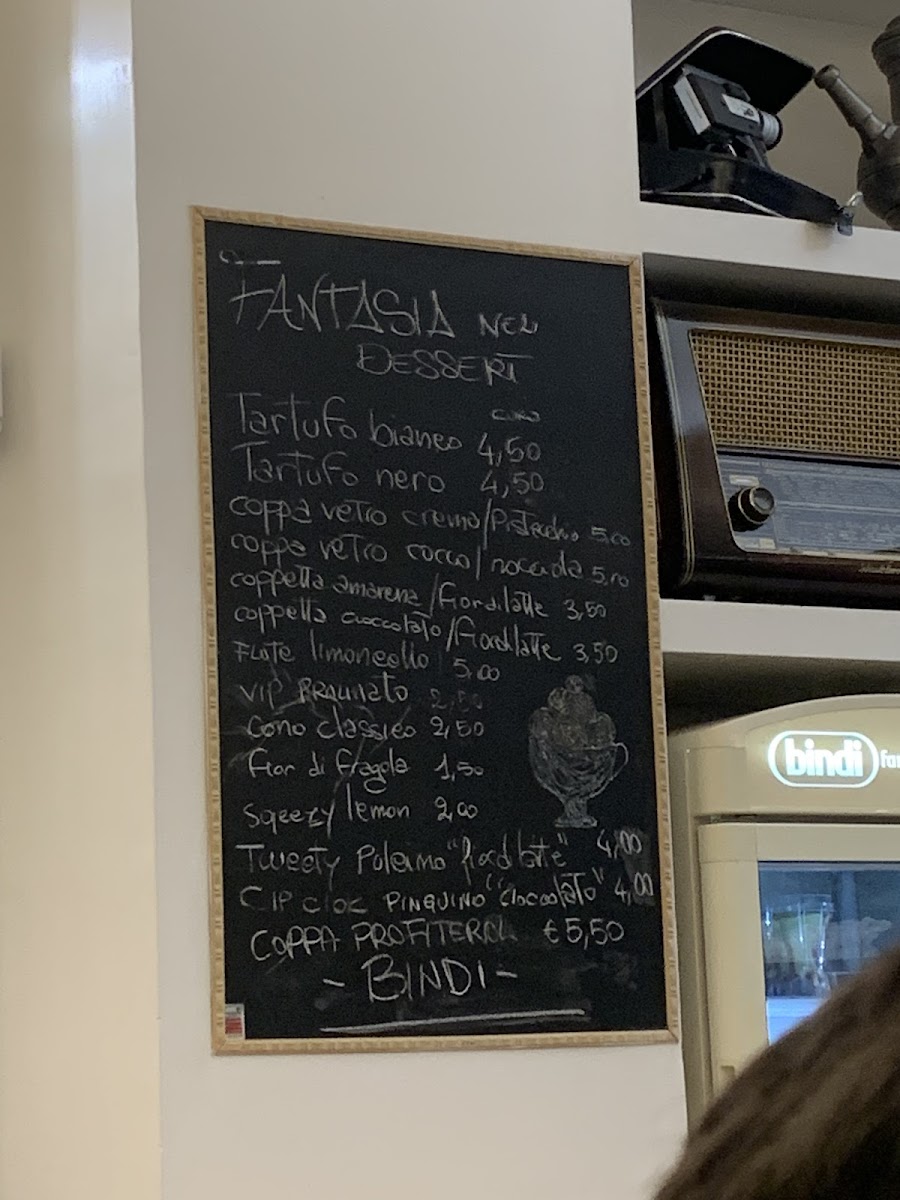 FANTASIA NEL
DESSERT
EURO
Tartufo bianco 4,50
Tartufo nero 4,50
coppa vetro crema/Pistacchio 5,00
coppa vetro cocco/nocciola 5,00
coppetta amarena/Fiordilatte 3,50
coppetta cioccolato/Fiordilatte 3,50
FLUTE limoncello 5,00
VIP BRAUNATO 2,50
Cono classico 2,50
Fior di fragola 1,50
Sqeezy lemon 2,00
TWEETY Pulcino "fiordilatte" 4,00
CIP CIOC PINGUINO "cioccolato" 4,00
COPPA PROFITEROL €5,50
- BINDI -
bindi